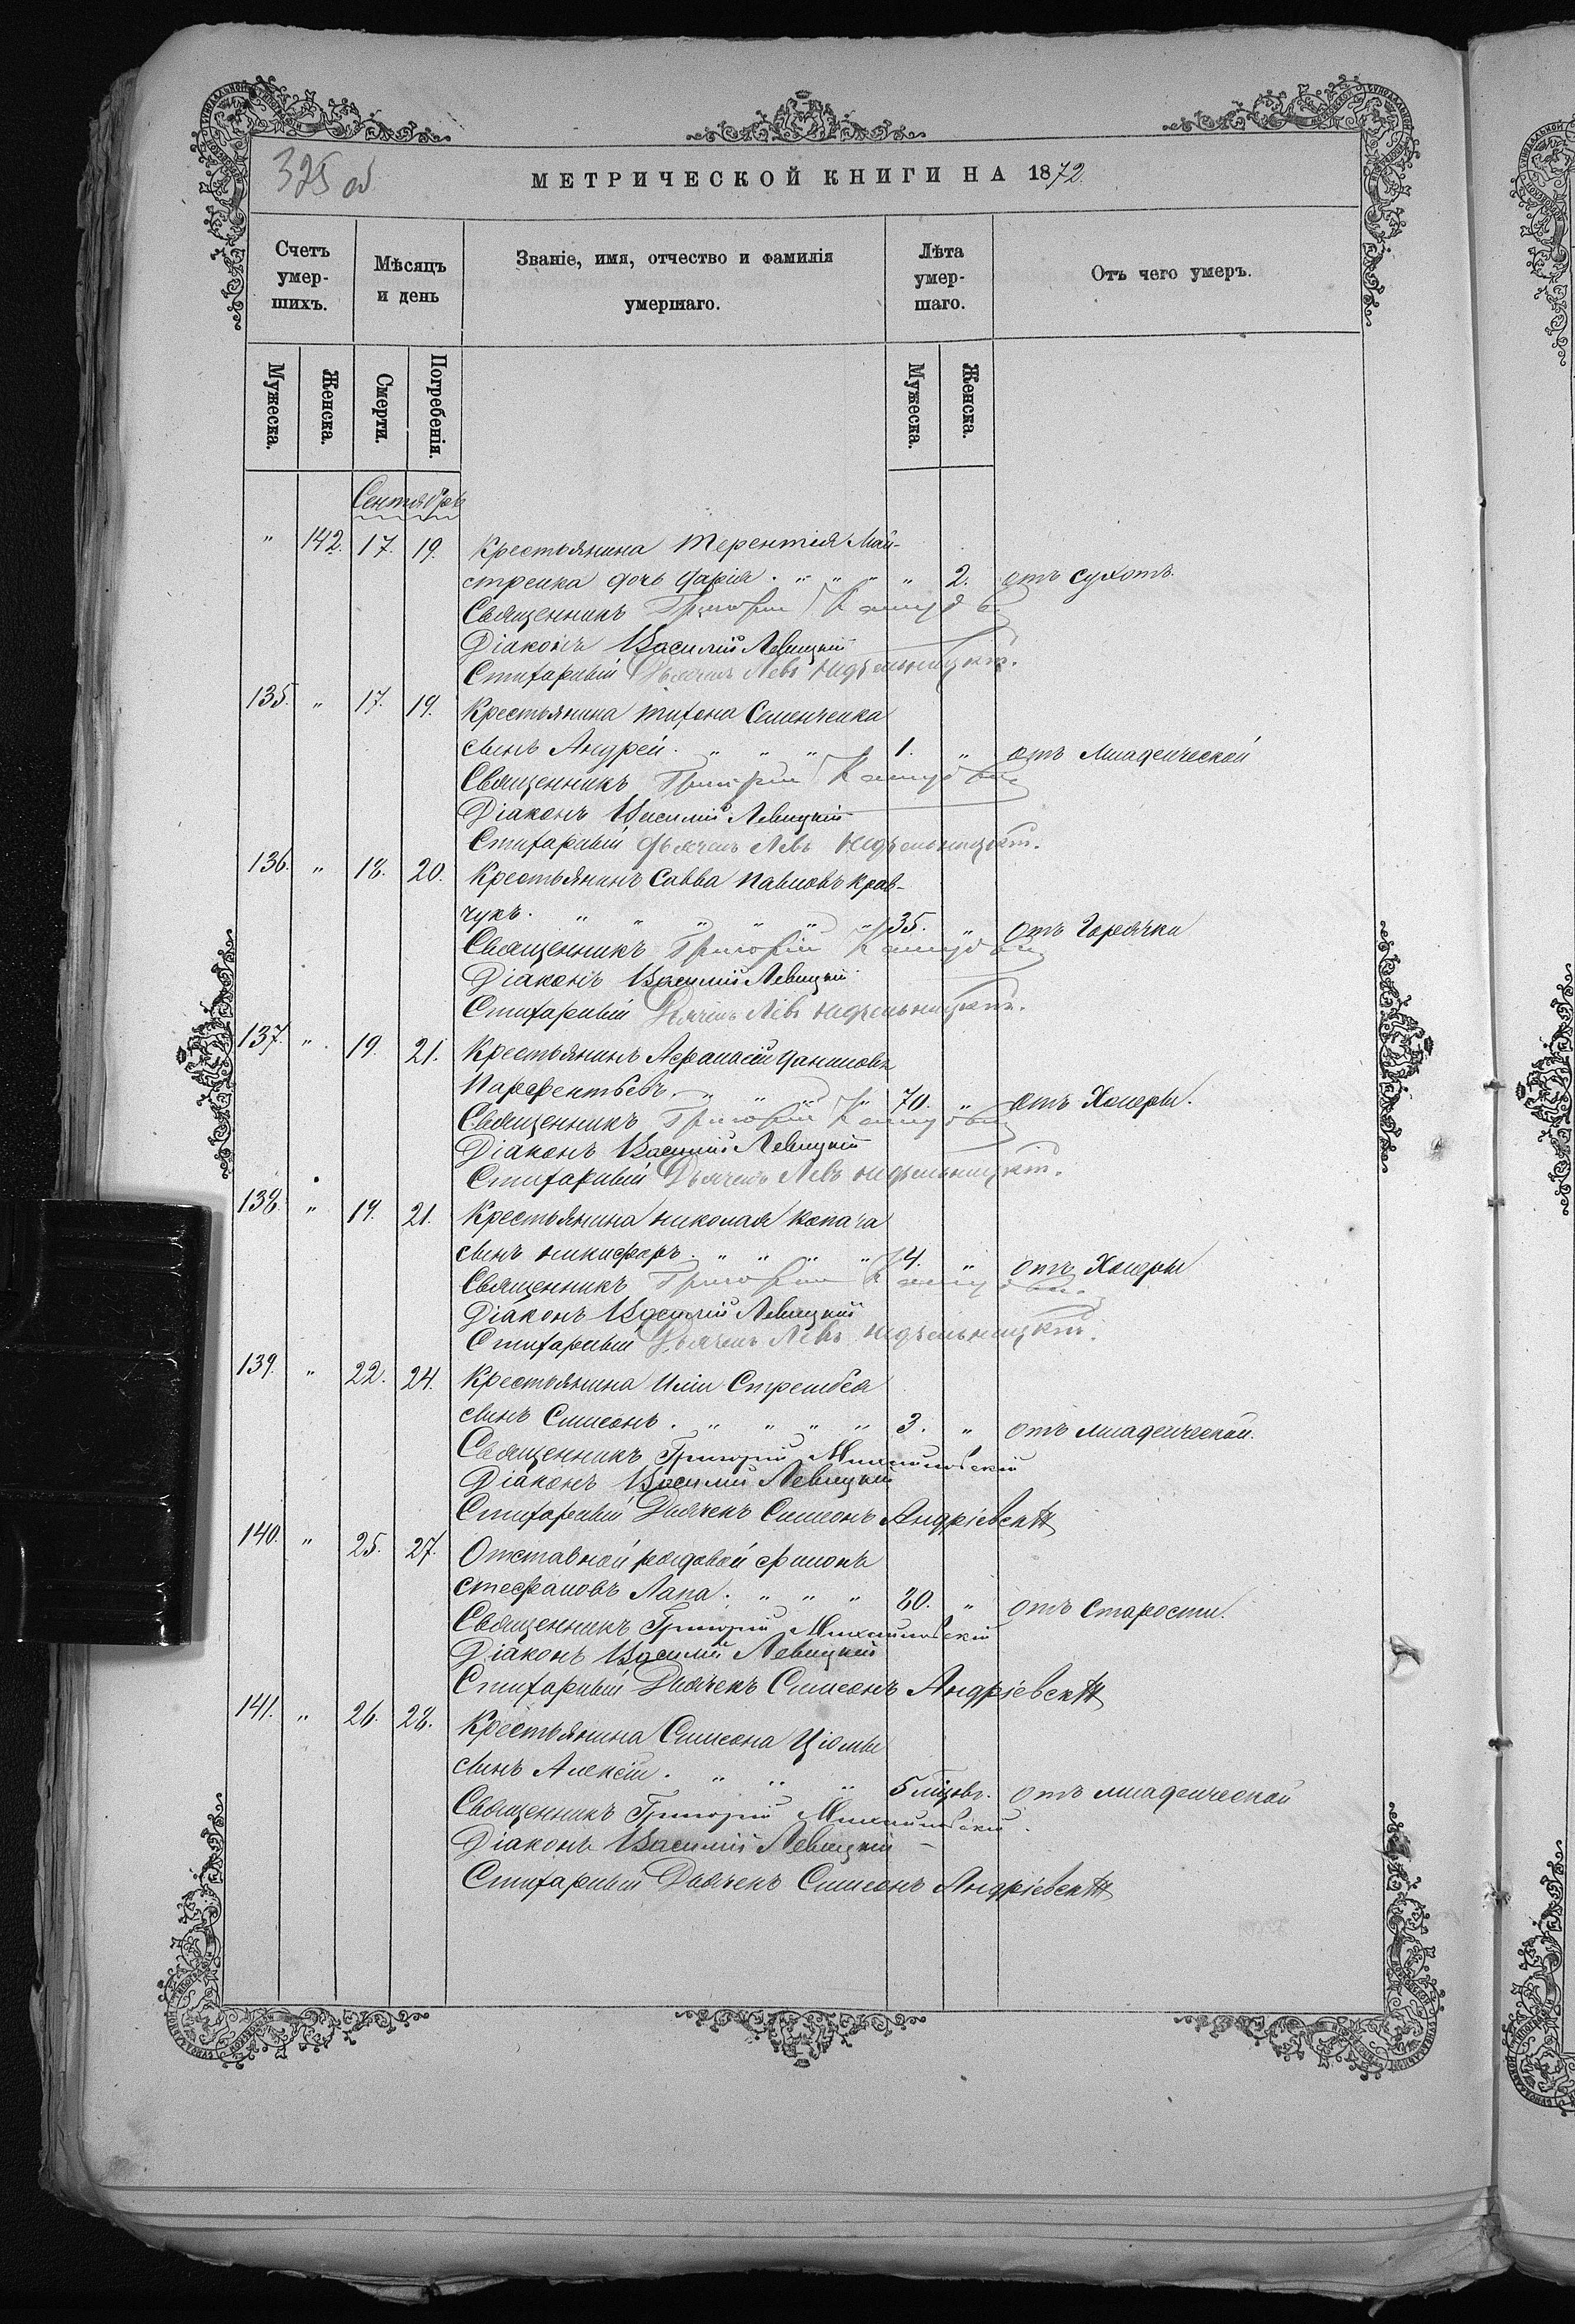 325 об
МЕТРИЧЕСКОЙ КНИГИ НА 1872.
Счетъ умер-шихъ. Мѣсяцъ и день Званіе, имя, отчество и фамилія умершаго. Лѣта умер-шаго. Отъ чего умеръ.
Мужеска. Женска. Смерти. Погребенія. Мужеска. Женска.
Сентябрь
" 142. 17. 19. Крестьянина Терентія Май-
стренка дочь Дарія. " " " " 2. отъ сухотъ.
Священникъ Григорій
Діаконъ Василій Левицкій
Стихарный Дьячекъ Левъ Недѣльницкій.
135. " 17. 19. Крестьянина Тихона Семенченка
сынъ Андрей. " " " 1. " отъ Младенческой
Священникъ Григорій
Діаконъ Василій Левицкій
Стихарный Дьячекъ Левъ Недѣльницкій.
136. " 18. 20. Крестьянинъ Савва Павловъ Крав-
чукъ. " " " " " " 35. " отъ Горячки
Священникъ Григорій
Діаконъ Василій Левицкій
Стихарный Дьячекъ Левъ Недѣльницкій.
137. " 19. 21. Крестьянинъ Афанасій Даниловъ
Парфентьевъ. " " " " 70. " отъ Холеры.
Священникъ Григорій
Діаконъ Василій Левицкій
Стихарный Дьячекъ Левъ Недѣльницкій.
138. " 19. 21. Крестьянина Николая Копача
сынъ Никифоръ. " " " " 4. " отъ Холеры
Священникъ Григорій
Діаконъ Василій Левицкій
Стихарный Дьячекъ Левъ Недѣльницкій.
139. " 22. 24. Крестьянина Иліи Стрембея
сынъ Симеонъ. " " " " 3. " отъ младенческой.
Священникъ Григорій
Діаконъ Василій Левицкій
Стихарный Дьячекъ Симеонъ Андріевскій
140. " 25. 27. Отставной рядовой Филонъ
Стефановъ Лапа. " " " 80. " отъ Старости.
Священникъ Григорій
Діаконъ Василій Левицкій
Стихарный Дьячекъ Симеонъ Андріевскій
141. " 26. 28. Крестьянина Симеона Ціомы
сынъ Алексій. " " " 5 мѣцовъ. отъ младенческой
Священникъ Григорій
Діаконъ Василій Левицкій
Стихарный Дьячекъ Симеонъ Андріевскій